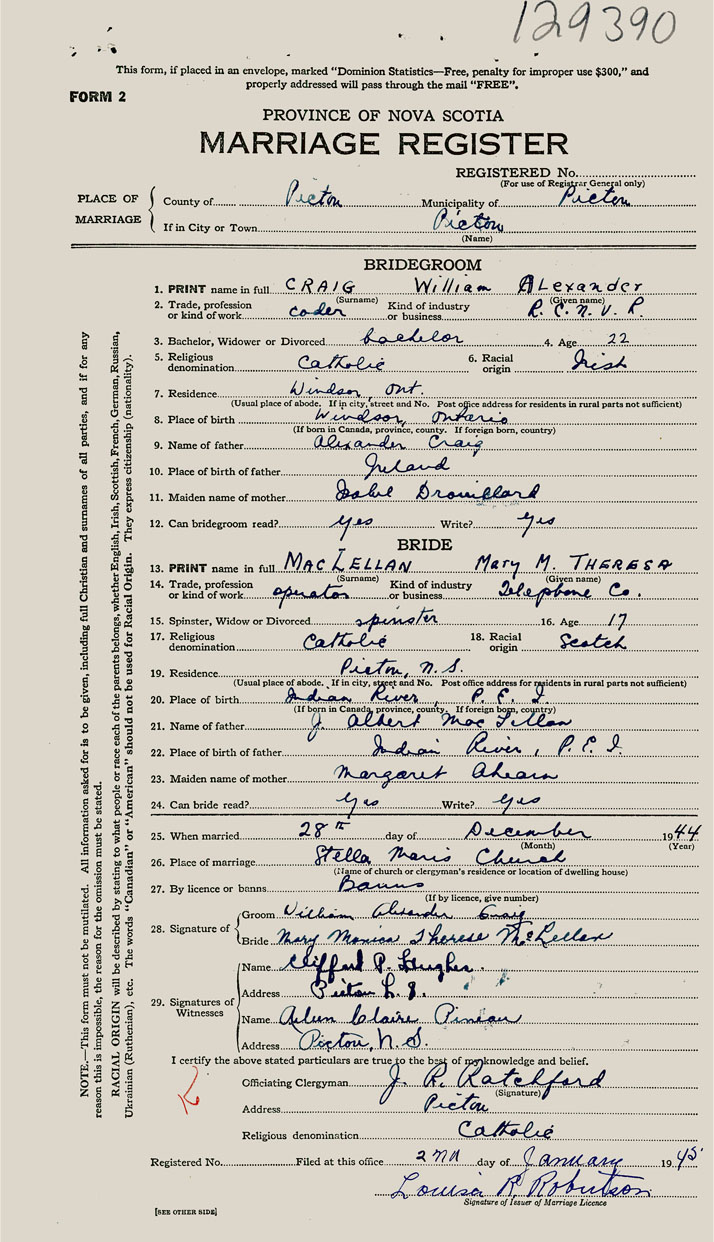 129390
This form, if placed in an envelope, marked "Dominion Statistics—Free, penalty for improper use $300," and
properly addressed will pass through the mail "FREE".
FORM 2
PROVINCE OF NOVA SCOTIA
MARRIAGE REGISTER
REGISTERED No.
(For use of Registrar General only)
PLACE OF MARRIAGE
County of Pictou Municipality of Pictou
If in City or Town Pictou
(Name)
BRIDEGROOM
1. PRINT name in full CRAIG William Alexander
(Surname) (Given name)
2. Trade, profession or kind of work coder Kind of industry or business R.C.N.V.R.
3. Bachelor, Widower or Divorced bachelor 4. Age 22
5. Religious denomination Catholic 6. Racial origin Irish
7. Residence Windsor, Ont.
(Usual place of abode. If in city, street and No. Post office address for residents in rural parts not sufficient)
8. Place of birth Windsor, Ontario
(If born in Canada, province, county. If foreign born, country)
9. Name of father Alexander Craig
10. Place of birth of father Ireland
11. Maiden name of mother Isabel Drouillard
12. Can bridegroom read? yes Write? yes
BRIDE
13. PRINT name in full MACLELLAN Mary M. THERESA
(Surname) (Given name)
14. Trade, profession or kind of work operator Kind of industry or business Telephone Co.
15. Spinster, Widow or Divorced spinster 16. Age 17
17. Religious denomination Catholic 18. Racial origin Scotch
19. Residence Pictou, N.S.
(Usual place of abode. If in city, street and No. Post office address for residents in rural parts not sufficient)
20. Place of birth Indian River, P.E.I.
(If born in Canada, province, county. If foreign born, country)
21. Name of father J. Albert MacLellan
22. Place of birth of father Indian River, P.E.I.
23. Maiden name of mother Margaret Ahearn
24. Can bride read? yes Write? yes
25. When married 28th day of December 1944
(Month) (Year)
26. Place of marriage Stella Maris Church
(Name of church or clergyman's residence or location of dwelling house)
27. By licence or banns Banns
(If by licence, give number)
28. Signature of
Groom William Alexander Craig
Bride Mary Monica Therese McLellan
29. Signatures of Witnesses
Name Clifford P. Hughes.
Address Pictou
Name Claire Pineau
Address Pictou, N.S.
I certify the above stated particulars are true to the best of my knowledge and belief.
Officiating Clergyman J. R. Ratchford
(Signature)
Address Pictou
Religious denomination Catholic
Registered No. Filed at this office 2nd day of January 1945
Louisa R. Robertson
Signature of Issuer of Marriage Licence
[SEE OTHER SIDE]
NOTE.—This form must not be mutilated. All information asked for is to be given, including full Christian and surnames of all parties, and if for any
reason this is impossible, the reason for the omission must be stated.
RACIAL ORIGIN will be described by stating to what people or race each of the parents belongs, whether English, Irish, Scottish, French, German, Russian,
Ukrainian (Ruthenian), etc. The words "Canadian" or "American" should not be used for Racial Origin. They express citizenship (nationality).